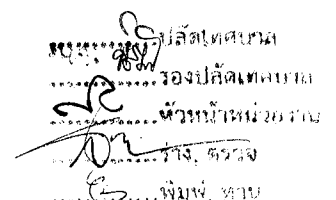 ปลัดเทศบาล
รองปลัดเทศบาล
หัวหน้าหน่วยงาน
ร่าง, ตรวจ
พิมพ์, ทาน